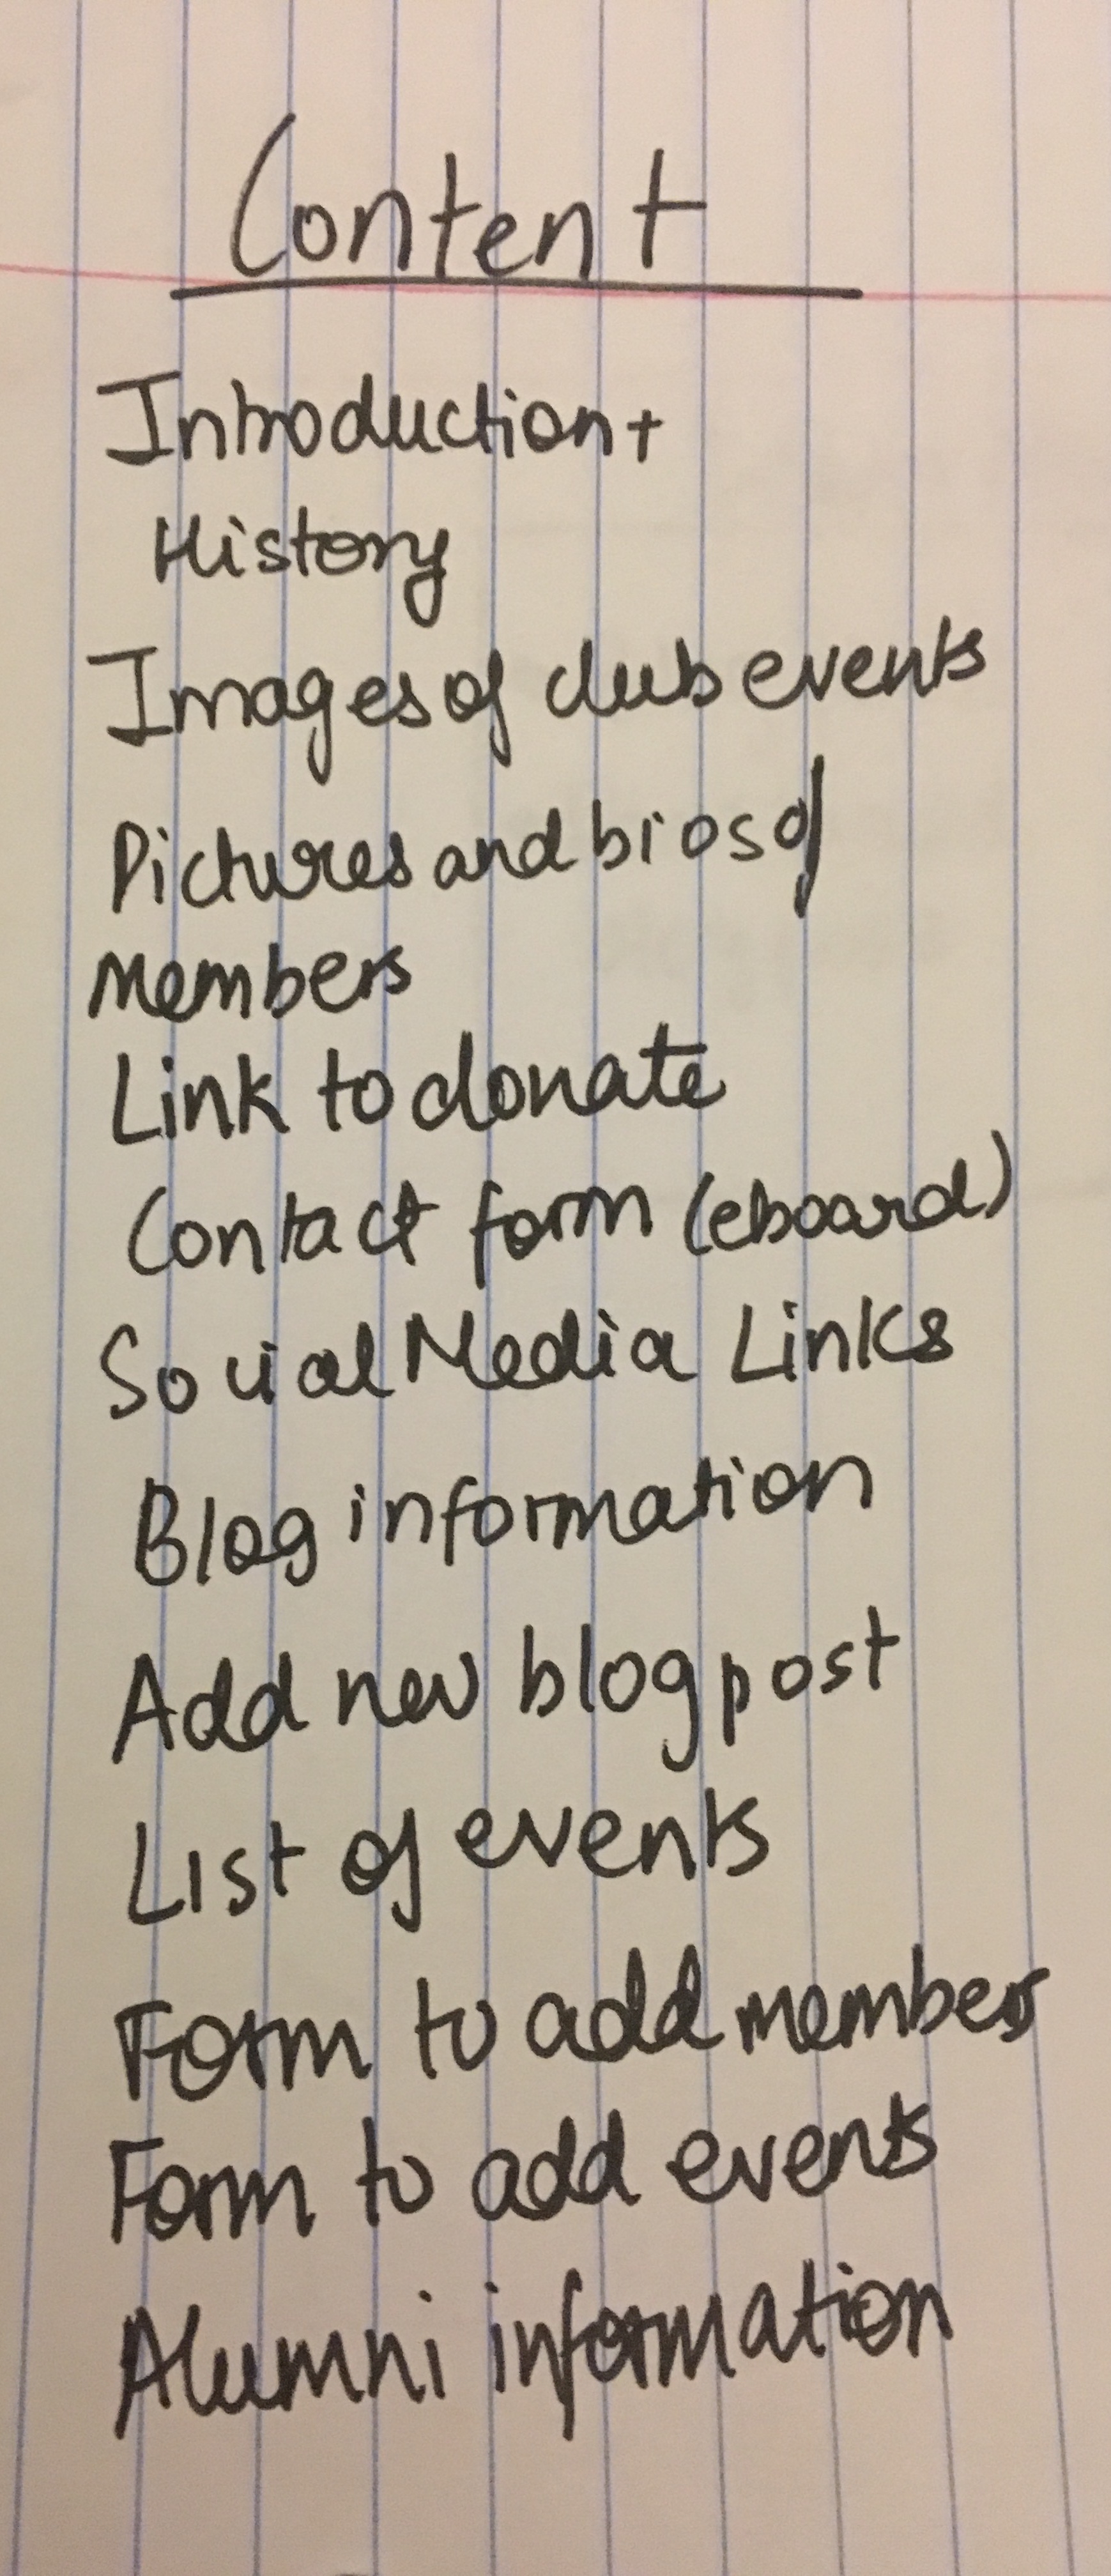 Content
Introduction +
History
Images of club events
Pictures and bios of
members
Link to donate
Contact form (eboard)
Social Media Links
Blog information
Add new blog post
List of events
Form to add members
Form to add events
Alumni information